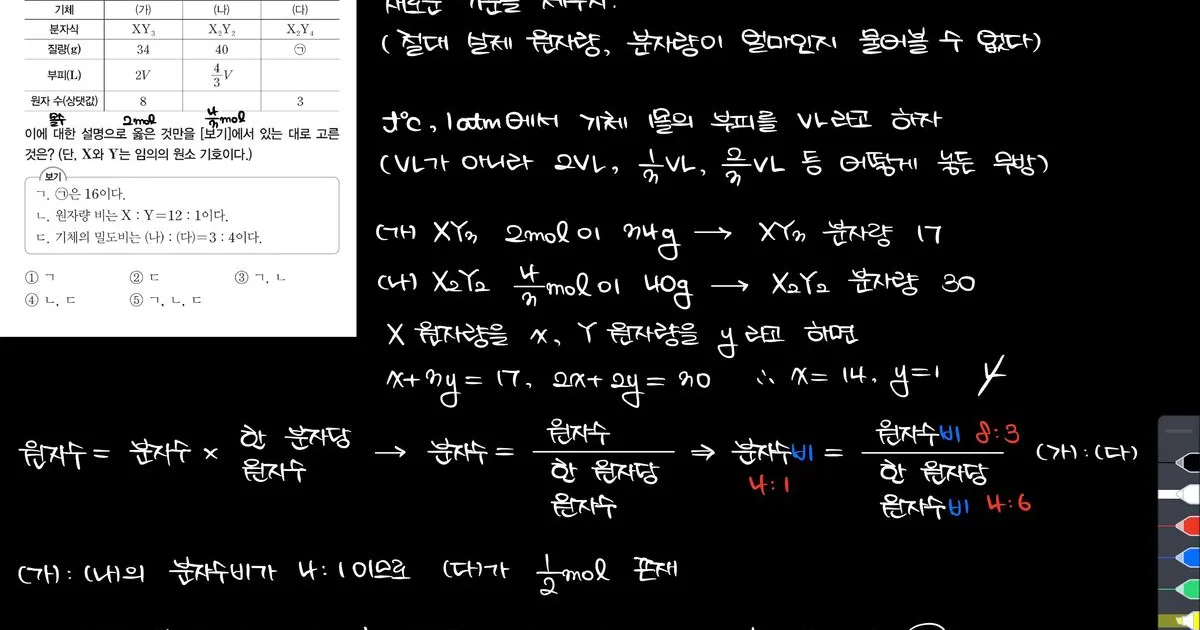 기체 (가) (나) (다)
분자식 XY₃ X₂Y₂ X₂Y₄
질량(g) 34 40 ㉠
부피(L) 2V 4/3 V
원자 수(상댓값) 8 3
몰수 2mol 4/3 mol
이에 대한 설명으로 옳은 것만을 [보기]에서 있는 대로 고른
것은? (단, X와 Y는 임의의 원소 기호이다.)
보기
ㄱ. ㉠은 16이다.
ㄴ. 원자량 비는 X : Y=12 : 1이다.
ㄷ. 기체의 밀도비는 (나) : (다)=3 : 4이다.
① ㄱ ② ㄷ ③ ㄱ, ㄴ
④ ㄴ, ㄷ ⑤ ㄱ, ㄴ, ㄷ
기준을
(절대 실제 원자량, 분자량이 얼마인지 물어볼 수 없다)
t℃, 1atm에서 기체 1몰의 부피를 VL라고 하자
(VL가 아니라 2VL, 1/3 VL, 2/3 VL 등 어떻게 놓든 무방)
(가) XY₃ 2mol이 34g → XY₃ 분자량 17
(나) X₂Y₂ 4/3 mol이 40g → X₂Y₂ 분자량 30
X 원자량을 x, Y 원자량을 y라고 하면
x+3y=17, 2x+2y=30 ∴ x=14, y=1
원자수 = 분자수 × 한 분자당 원자수 → 분자수 = 원자수 / 한 원자당 원자수 ⇒ 분자수비 4:1 = 원자수비 8:3 / 한 원자당 원자수비 4:6 (가):(다)
(가):(나)의 분자수비가 4:1이므로 (다)가 1/2 mol 존재